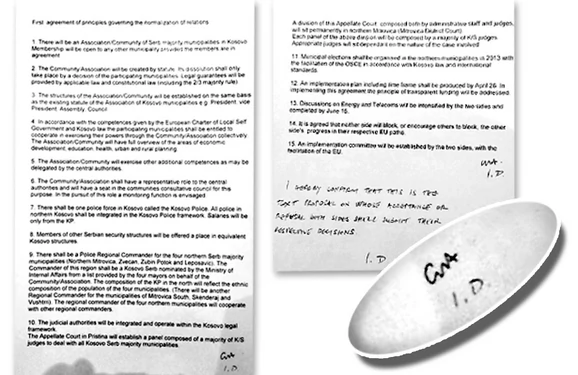 First agreement of principles governing the normalization of relations
1. There will be an Association/Community of Serb majority municipalities in Kosovo.
Membership will be open to any other municipality provided the members are in
agreement
2. The Community/Association will be created by statute. Its dissolution shall only
take place by a decision of the participating municipalities. Legal guarantees will be
provided by applicable law and constitutional law (including the 2/3 majority rule)
3. The structures of the Association/Community will be established on the same basis
as the existing statute of the Association of Kosovo municipalities e.g. President, vice
President, Assembly, Council
4. In accordance with the competences given by the European Charter of Local Self
Government and Kosovo law the participating municipalities shall be entitled to
cooperate in exercising their powers through the Community/Association collectively.
The Association/Community will have full overview of the areas of economic
development, education, health, urban and rural planning
5. The Association/Community will exercise other additional competences as may be
delegated by the central authorities.
6. The Community/Association shall have a representative role to the central
authorities and will have a seat in the communities consultative council for this
purpose. In the pursuit of this role a monitoring function is envisaged
7. There shall be one police force in Kosovo called the Kosovo Police. All police in
northern Kosovo shall be integrated in the Kosovo Police framework. Salaries will be
only from the KP.
8. Members of other Serbian security structures will be offered a place in equivalent
Kosovo structures
9. There shall be a Police Regional Commander for the four northern Serb majority
municipalities (Northern Mitrovica, Zvecan, Zubin Potok and Leposavic). The
Commander of this region shall be a Kosovo Serb nominated by the Ministry of
Internal Affairs from a list provided by the four mayors on behalf of the
Community/Association. The composition of the KP in the north will reflect the ethnic
composition of the population of the four municipalities. (There will be another
Regional Commander for the municipalities of Mitrovica South, Skenderaj and
Vushtrri). The regional commander of the four northern municipalities will cooperate
with other regional commanders.
10. The judicial authorities will be integrated and operate within the Kosovo legal
framework.
The Appellate Court in Pristina will establish a panel composed of a majority of K/S
judges to deal with all Kosovo Serb majority municipalities.
I.D.
A division of this Appellate Court, composed both by administrative staff and judges,
will sit permanently in northern Mitrovica (Mitrovica District Court)
Each panel of the above division will be composed by a majority of K/S judges.
Appropriate judges will sit dependant on the nature of the case involved
11. Municipal elections shall be organised in the northern municipalities in 2013 with
the facilitation of the OSCE in accordance with Kosovo law and international
standards.
12. An implementation plan including time frame shall be prepared by April 26. In
implementing this agreement the principle of transparent funding will be addressed.
13. Discussions on Energy and Telecoms will be intensified by the two sides and
completed by June 15.
14. It is agreed that neither side will block, or encourage others to block, the other
side's progress in their respective EU paths.
15. An implementation committee will be established by the two sides, with the
facilitation of the EU.
I.D.
I HEREBY CONFIRM THAT THIS IS THE
TEXT PROPOSAL ON WHOSE ACCEPTANCE OR
REFUSAL BOTH SIDES SHALL SUBMIT THEIR
RESPECTIVE DECISIONS.
I.D.
I.D.